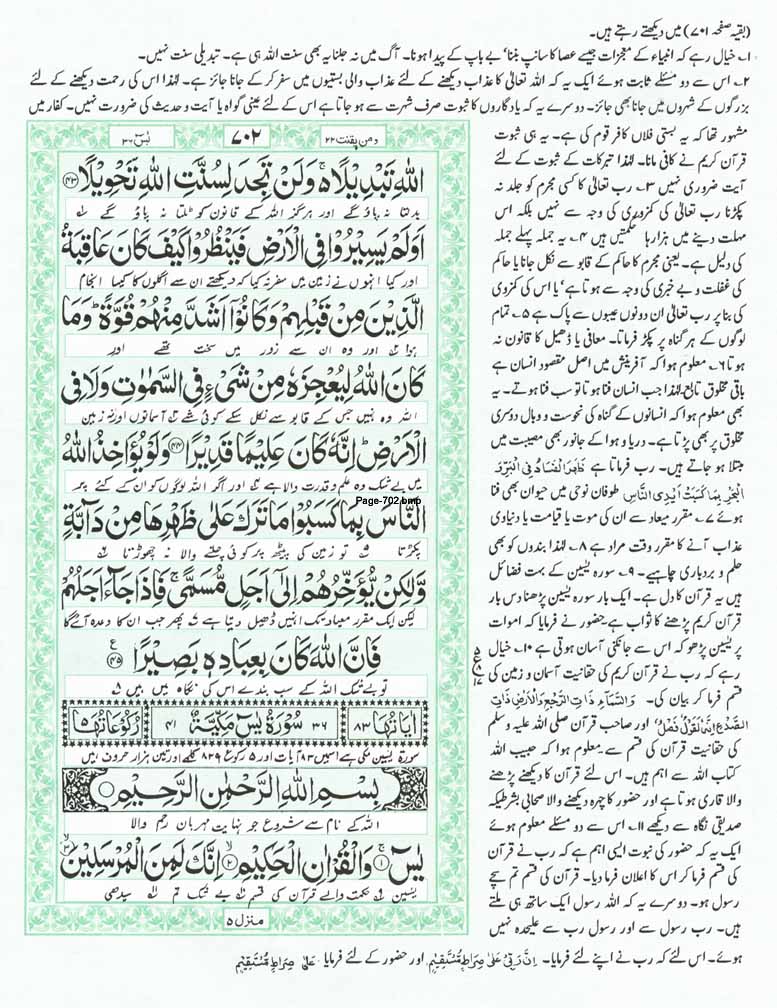 (بقیہ صفحہ ۷۰۱) میں دیکھتے رہتے ہیں۔
۱۔ خیال رہے کہ انبیاء کے معجزات جیسے عصا کا سانپ بننا' بے باپ کے پیدا ہونا۔ آگ میں نہ جلنا یہ بھی سنت اللہ ہی ہے۔ تبدیلی سنت نہیں۔
۲۔ اس سے دو مسئلے ثابت ہوئے ایک یہ کہ اللہ تعالیٰ کا عذاب دیکھنے کے لئے عذاب والی بستیوں میں سفر کر کے جانا جائز ہے۔ لہٰذا اس کی رحمت دیکھنے کے لئے
بزرگوں کے شہروں میں جانا بھی جائز۔ دوسرے یہ کہ یادگاروں کا ثبوت صرف شہرت سے ہو جاتا ہے اس کے لئے عینی گواہ یا آیت و حدیث کی ضرورت نہیں۔ کفار میں
مشہور تھا کہ یہ بستی فلاں کافر قوم کی ہے۔ یہ ہی ثبوت
قرآن کریم نے کافی مانا۔ لہٰذا تبرکات کے ثبوت کے لئے
آیت ضروری نہیں ۳۔ رب تعالیٰ کا کسی مجرم کو جلد نہ
پکڑنا رب تعالیٰ کی کمزوری کی وجہ سے نہیں بلکہ اس
مہلت دینے میں ہزارہا حکمتیں ہیں ۴۔ یہ جملہ پہلے جملہ
کی دلیل ہے۔ یعنی مجرم کا حاکم کے قابو سے نکل جانا یا حاکم
کی غفلت و بے خبری کی وجہ سے ہوتا ہے' یا اس کی کمزوی
کی بنا پر رب تعالیٰ ان دونوں عیبوں سے پاک ہے ۵۔ تمام
لوگوں کے ہر گناہ پر پکڑ فرماتا۔ معافی یا ڈھیل کا قانون نہ
ہوتا ۶۔ معلوم ہوا کہ آفرینش میں اصل مقصود انسان ہے
باقی مخلوق تابع۔ لہٰذا جب انسان فنا ہوتا تو سب فنا ہوتے۔ یہ
بھی معلوم ہوا کہ انسانوں کے گناہ کی نحوست و وبال دوسری
مخلوق پر بھی پڑتا ہے۔ دریا و ہوا کے جانور بھی مصیبت میں
مبتلا ہو جاتے ہیں۔ رب فرماتا ہے ظَهَرَ الْفَسَادُ فِي الْبَرِّ وَ
الْبَحْرِ بِمَا كَسَبَتْ اَيْدِي النَّاسِ طوفان نوحی میں حیوان بھی فنا
ہوئے ۷۔ مقرر میعاد سے ان کی موت یا قیامت یا دنیاوی
عذاب آنے کا مقرر وقت مراد ہے ۸۔ لہٰذا بندوں کو بھی
حلم و بردباری چاہیے۔ ۹۔ سورہ یٰسین کے بہت فضائل
ہیں یہ قرآن کا دل ہے۔ ایک بار سورہ یٰسین پڑھنا دس بار
قرآن کریم پڑھنے کا ثواب ہے حضور نے فرمایا کہ اموات
پر یٰسین پڑھو کہ اس سے جانکنی آسان ہوتی ہے ۱۰۔ خیال
رہے کہ رب نے قرآن کریم کی حقانیت آسمان و زمین کی
قسم فرما کر بیان کی۔ وَالسَّمَآءِ ذَاتِ الرَّجْعِ وَالْاَرْضِ ذَاتِ
الصَّدْعِ اِنَّهٗ لَقَوْلٌ فَصْلٌ' اور صاحب قرآن صلی اللہ علیہ وسلم
کی حقانیت قرآن کی قسم سے معلوم ہوا کہ حبیب اللہ
کتاب اللہ سے اہم ہیں۔ اس لئے قرآن کا دیکھنے پڑھنے
والا قاری ہوتا ہے اور حضور کا چہرہ دیکھنے والا صحابی بشرطیکہ
صدیقی نگاہ سے دیکھے ۱۱۔ اس سے دو مسئلے معلوم ہوئے
ایک یہ کہ حضور کی نبوت ایسی اہم ہے کہ رب نے قرآن
کی قسم فرما کر اس کا اعلان فرما دیا۔ قرآن کی قسم تم سچے
رسول ہو۔ دوسرے یہ کہ اللہ رسول ایک ساتھ ہی ملتے
ہیں۔ رب رسول سے اور رسول رب سے علیحدہ نہیں
ہوئے۔ اس لئے کہ رب نے اپنے لئے فرمایا۔ اِنَّ رَبِّيْ عَلٰى صِرَاطٍ مُّسْتَقِيْمٍ اور حضور کے لئے فرمایا عَلٰى صِرَاطٍ مُّسْتَقِيْمٍ
ومن یقنت ۲۲
۷۰۲
یٰسٓ ۳۶
اللّٰهِ تَبْدِيْلًا ۚ وَلَنْ تَجِدَ لِسُنَّتِ اللّٰهِ تَحْوِيْلًا ﴿۴۳﴾
بدلتا نہ پاؤ گے اور ہرگز اللہ کے قانون کو ٹلتا نہ پاؤ گے
اَوَلَمْ يَسِيْرُوْا فِي الْاَرْضِ فَيَنْظُرُوْا كَيْفَ كَانَ عَاقِبَةُ
اور کیا انہوں نے زمین میں سفر نہ کیا کہ دیکھتے ان سے اگلوں کا کیسا انجام
الَّذِيْنَ مِنْ قَبْلِهِمْ وَكَانُوْۤا اَشَدَّ مِنْهُمْ قُوَّةً ؕ وَمَا
ہوا اور وہ ان سے زور میں سخت تھے اور
كَانَ اللّٰهُ لِيُعْجِزَهٗ مِنْ شَيْءٍ فِي السَّمٰوٰتِ وَلَا فِي
اللہ وہ نہیں جس کے قابو سے نکل سکے کوئی شے آسمانوں اور نہ زمین
الْاَرْضِ ؕ اِنَّهٗ كَانَ عَلِيْمًا قَدِيْرًا ﴿۴۴﴾ وَلَوْ يُؤَاخِذُ اللّٰهُ
میں بے شک وہ علم و قدرت والا ہے اور اگر اللہ لوگوں کو ان کے کئے پر
Page-702.bmp
النَّاسَ بِمَا كَسَبُوْا مَا تَرَكَ عَلٰى ظَهْرِهَا مِنْ دَآبَّةٍ
پکڑتا تو زمین کی پیٹھ پر کوئی چلنے والا نہ چھوڑتا
وَّلٰكِنْ يُّؤَخِّرُهُمْ اِلٰۤى اَجَلٍ مُّسَمًّى ۚ فَاِذَا جَآءَ اَجَلُهُمْ
لیکن ایک مقرر میعاد تک انہیں ڈھیل دیتا ہے پھر جب ان کا وعدہ آئے گا
فَاِنَّ اللّٰهَ كَانَ بِعِبَادِهٖ بَصِيْرًا ﴿۴۵﴾
تو بے شک اللہ کے سب بندے اس کی نگاہ میں ہیں
اٰيَاتُهَا ۸۳ ۳۶ سُوْرَةُ يٰسٓ مَكِّيَّةٌ ۴۱ رُكُوْعَاتُهَا ۵
سورۃ یٰسین مکی ہے اسمیں ۸۳ آیات اور ۵ رکوع ۸۲۹ کلمے اور تین ہزار حروف ہیں
بِسْمِ اللّٰهِ الرَّحْمٰنِ الرَّحِيْمِ
اللہ کے نام سے شروع جو نہایت مہربان رحم والا
يٰسٓ ﴿۱﴾ وَالْقُرْاٰنِ الْحَكِيْمِ ﴿۲﴾ اِنَّكَ لَمِنَ الْمُرْسَلِيْنَ ﴿۳﴾
یٰسین حکمت والے قرآن کی قسم بے شک تم سیدھی
منزل ۵